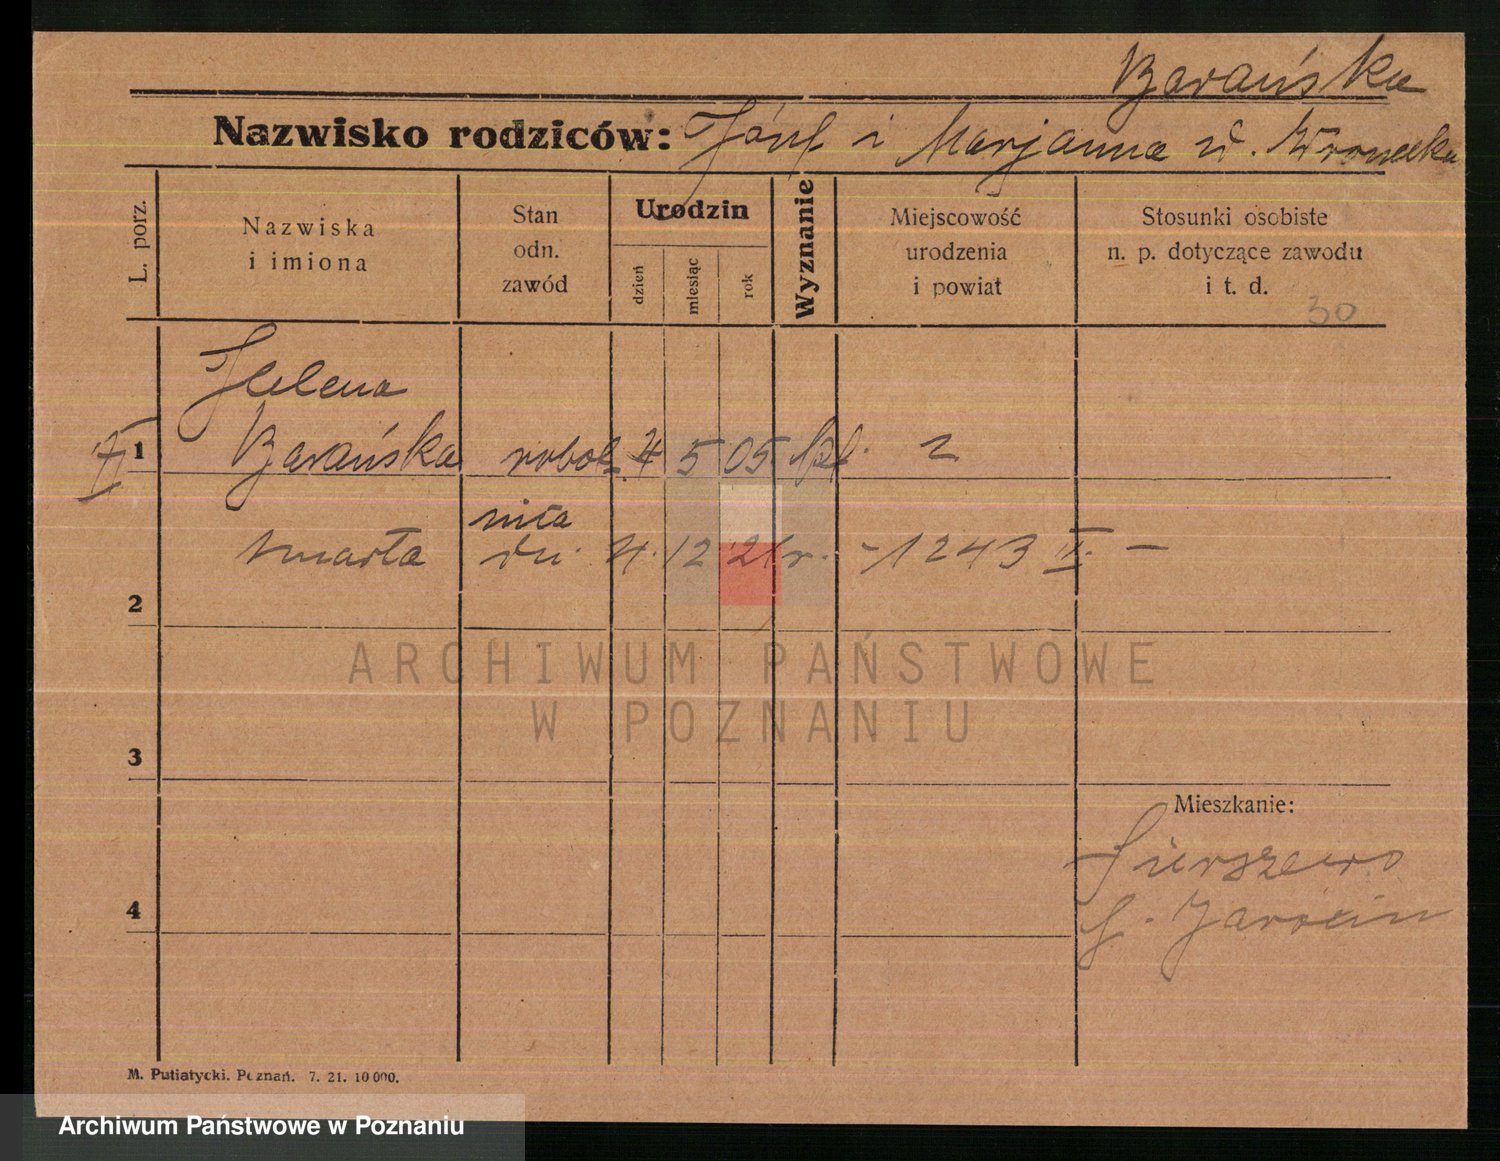 Barańska
Nazwisko rodziców: Józef i Marjanna
L. porz.
Nazwiska
i imiona
Stan
odn.
zawód
Urodzin
dzień
miesiąc
rok
Wyznanie
Miejscowość
urodzenia
i powiat
Stosunki osobiste
n. p. dotyczące zawodu
i t. d.
30
Helena
1 Barańska robot 4 5 05
nica
zmarła dn. 4. 12 21 r. - 1243 II. -
2
ARCHIWUM PAŃSTWOWE
W POZNANIU
3
Mieszkanie:
4
Jarocin
M. Putiatycki. Poznań. 7. 21. 10 000.
Archiwum Państwowe w Poznaniu